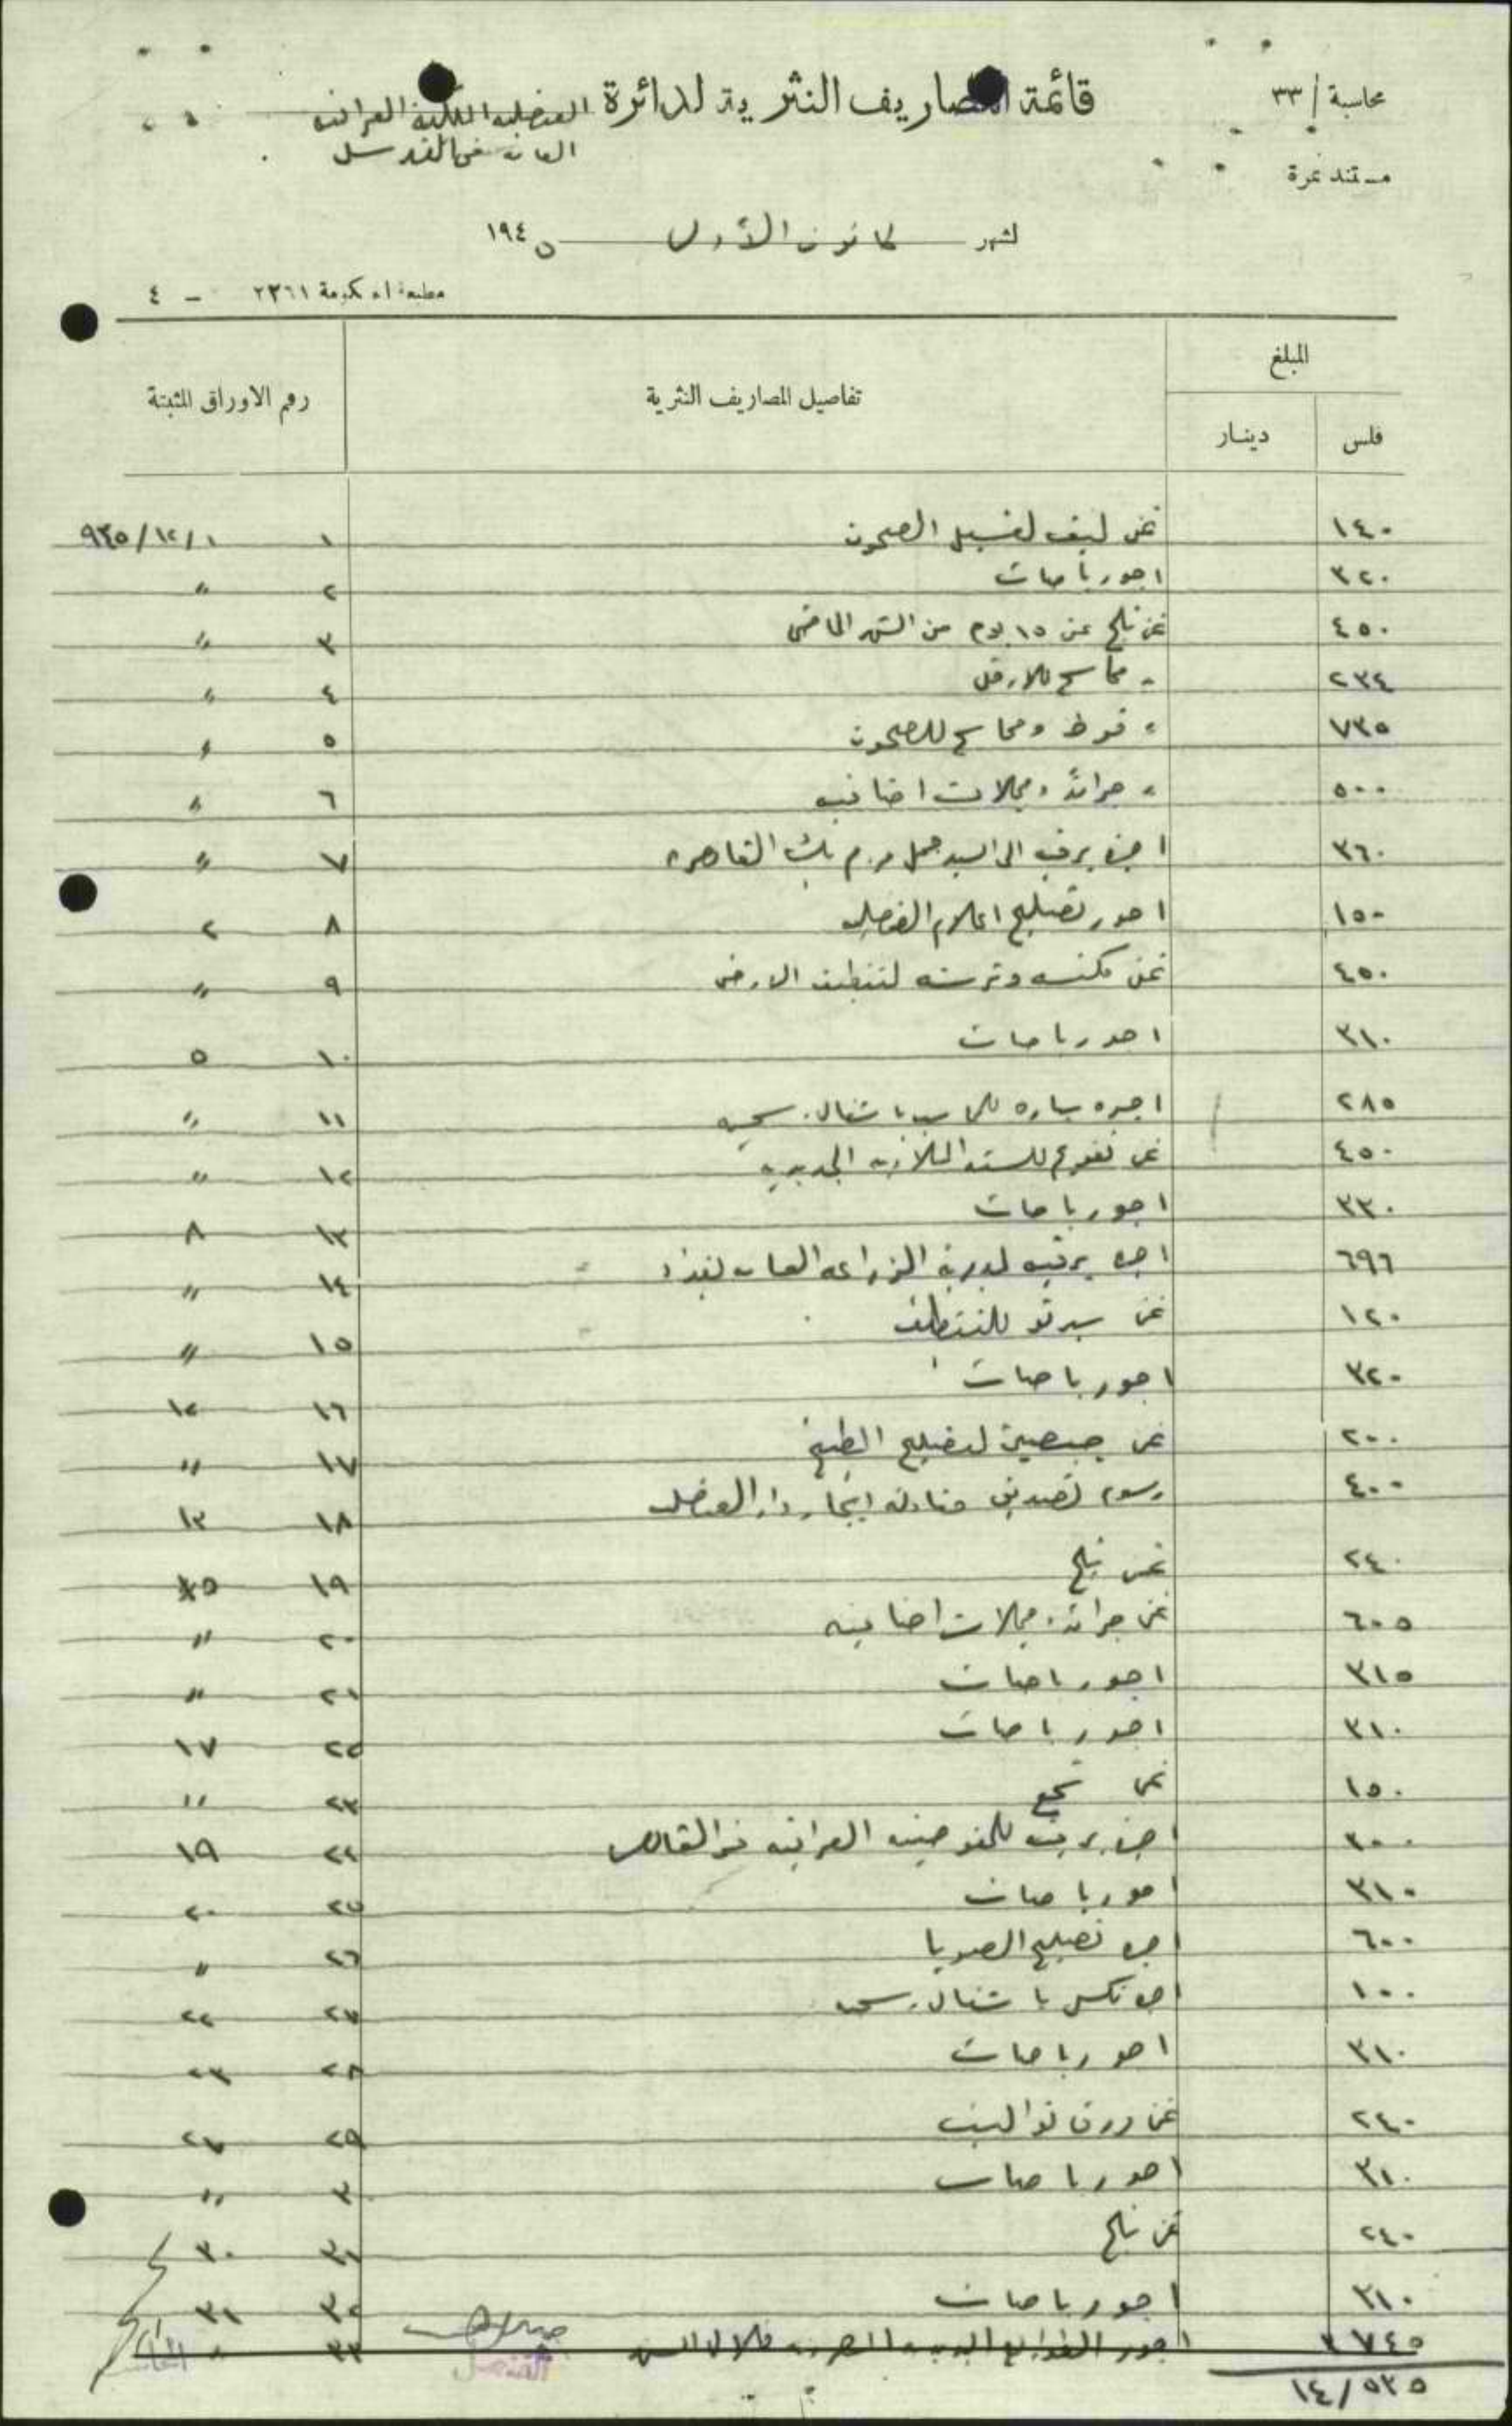 محاسبة / ٣٣
قائمة المصاريف النثرية لدائرة القنصلية الملكية العراقية
العامة في القدس
مستند نمرة
لشهر كانون الأول ١٩٤٥
مطبعة الحكومة ٢٣٦١ - ٤
المبلغ
فلس دينار تفاصيل المصاريف النثرية رقم الاوراق المثبتة
١٤٠ ثمن ليف لغسيل الصحون ١ ٩٤٥/١٢/١
٣٢٠ اجور باصات ٢ "
٤٥٠ ثمن ثلج عن ١٥ يوم من الشهر الماضي ٣ "
٢٣٤ " مماسح للارض ٤ "
٧٣٥ " فوط ومماسح للصحون ٥ "
٥٠٠ " جرائد ومجلات اضافية ٦ "
٣٦٠ اجرة برقية الى السيد بك القاهرة ٧ "
١٥٠ اجور تصليح اعلام القنصلية ٨ ٢
٤٥٠ ثمن مكنسه وفرشه لتنظيف الارض ٩ "
٣١٠ اجور باصات ١٠ ٥
٢٨٥ اجره سياره باشغال رسمية ١١ "
٤٥٠ ثمن للسنة الجديدة ١٢ "
٣٣٠ اجور باصات ١٣ ٨
٦٩٦ اجرة برقيه لمديرية الزراعه العامة بغداد ١٤ "
١٢٠ ثمن سبرتو للتنظيف ١٥ "
٣٢٠ اجور باصات ١٦ ١٢
٢٠٠ ثمن لتصليح الطبخ ١٧ "
٤٠٠ رسوم تصديق ايجار دار القنصلية ١٨ ١٣
٢٤٠ ثمن ثلج ١٩ ١٥
٦٠٥ ثمن جرائد ومجلات اضافيه ٢٠ "
٣١٥ اجور باصات ٢١ "
٣١٠ اجور باصات ٢٢ ١٧
١٥٠ ثمن ٢٣ "
٣٠٠ اجرة برقية للمفوضيه العراقيه في القاهرة ٢٤ ١٩
٣١٠ اجور باصات ٢٥ ٢٠
٦٠٠ اجرة تصليح الصوبا ٢٦ "
١٠٠ اجرة تكسي باشغال رسمية ٢٧ ٢٢
٣١٠ اجور باصات ٢٨ ٢٣
٢٤٠ ثمن ورق تواليت ٢٩ ٢٧
٣١٠ اجور باصات ٣٠ "
٢٤٠ ثمن ثلج ٣١ ٣٠
٣١٠ اجور باصات ٣٢ ٣١
٣٧٤٥ اجور الطوابع البريدية المصروفة خلال الشهر ٣٣ "
القنصل
١٤/٥٣٥